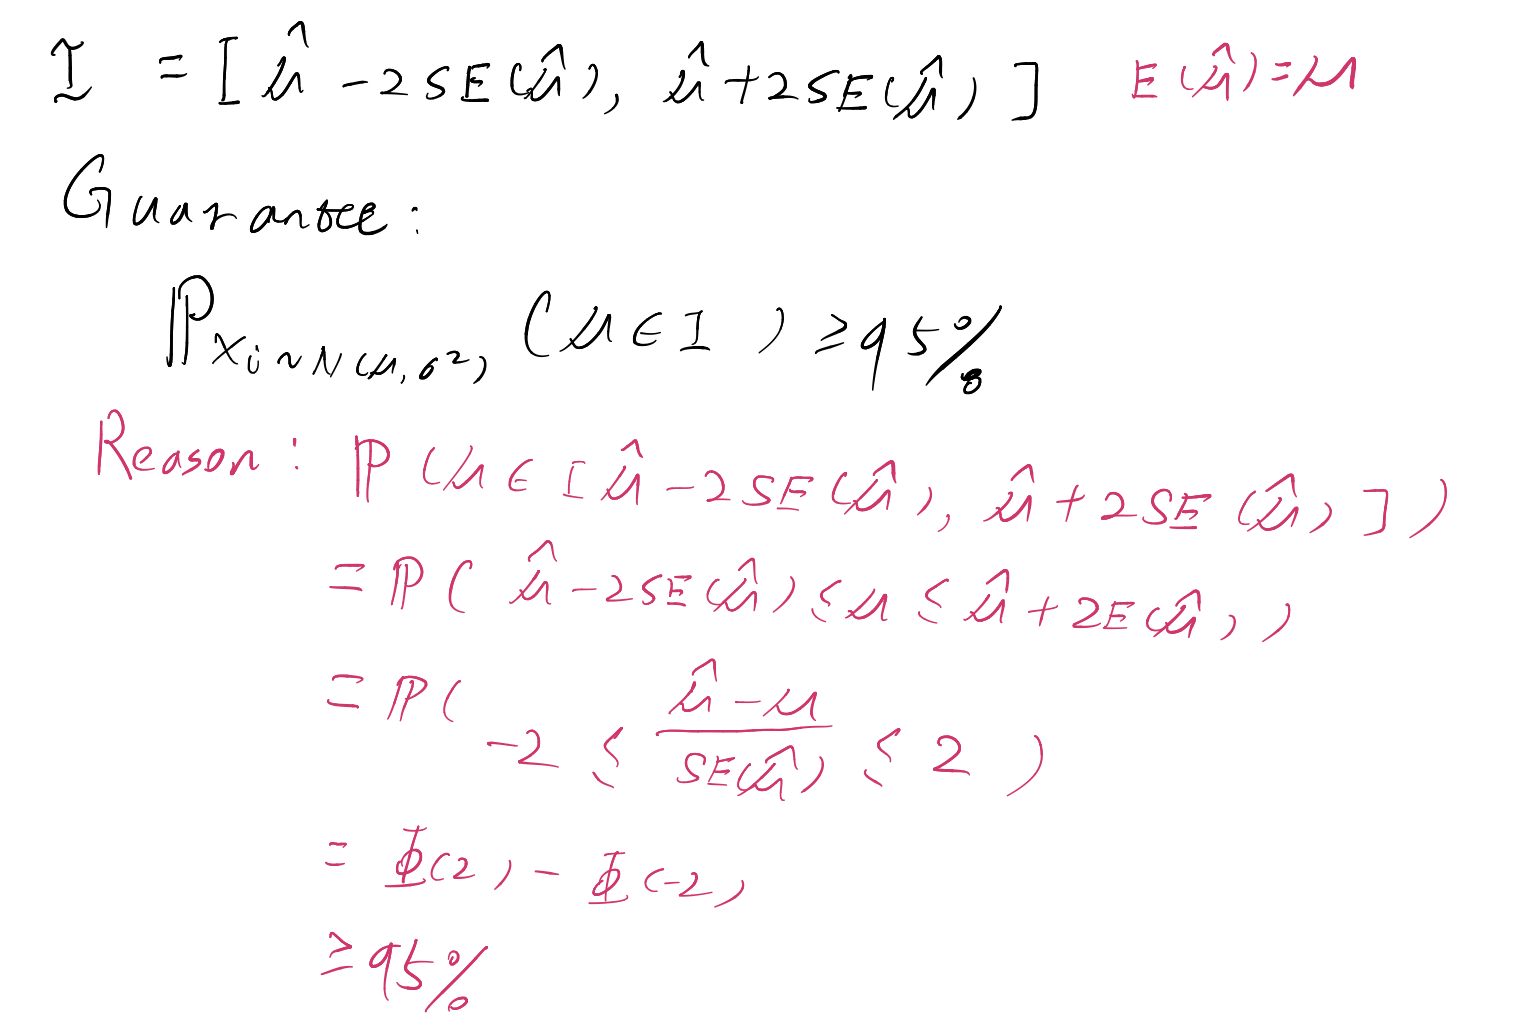 I = [ μ̂ - 2 SE(μ̂), μ̂ + 2SE(μ̂) ] E(μ̂) = μ
Guarantee :
ℙ_{Xi ~ N(μ, σ²)} (μ ∈ I) ≥ 95%
Reason : ℙ(μ ∈ [μ̂ - 2 SE(μ̂), μ̂ + 2 SE(μ̂)])
= ℙ( μ̂ - 2SE(μ̂) ≤ μ ≤ μ̂ + 2E(μ̂))
= ℙ( -2 ≤ (μ̂ - μ)/SE(μ̂) ≤ 2 )
= Φ(2) - Φ(-2)
≥ 95%